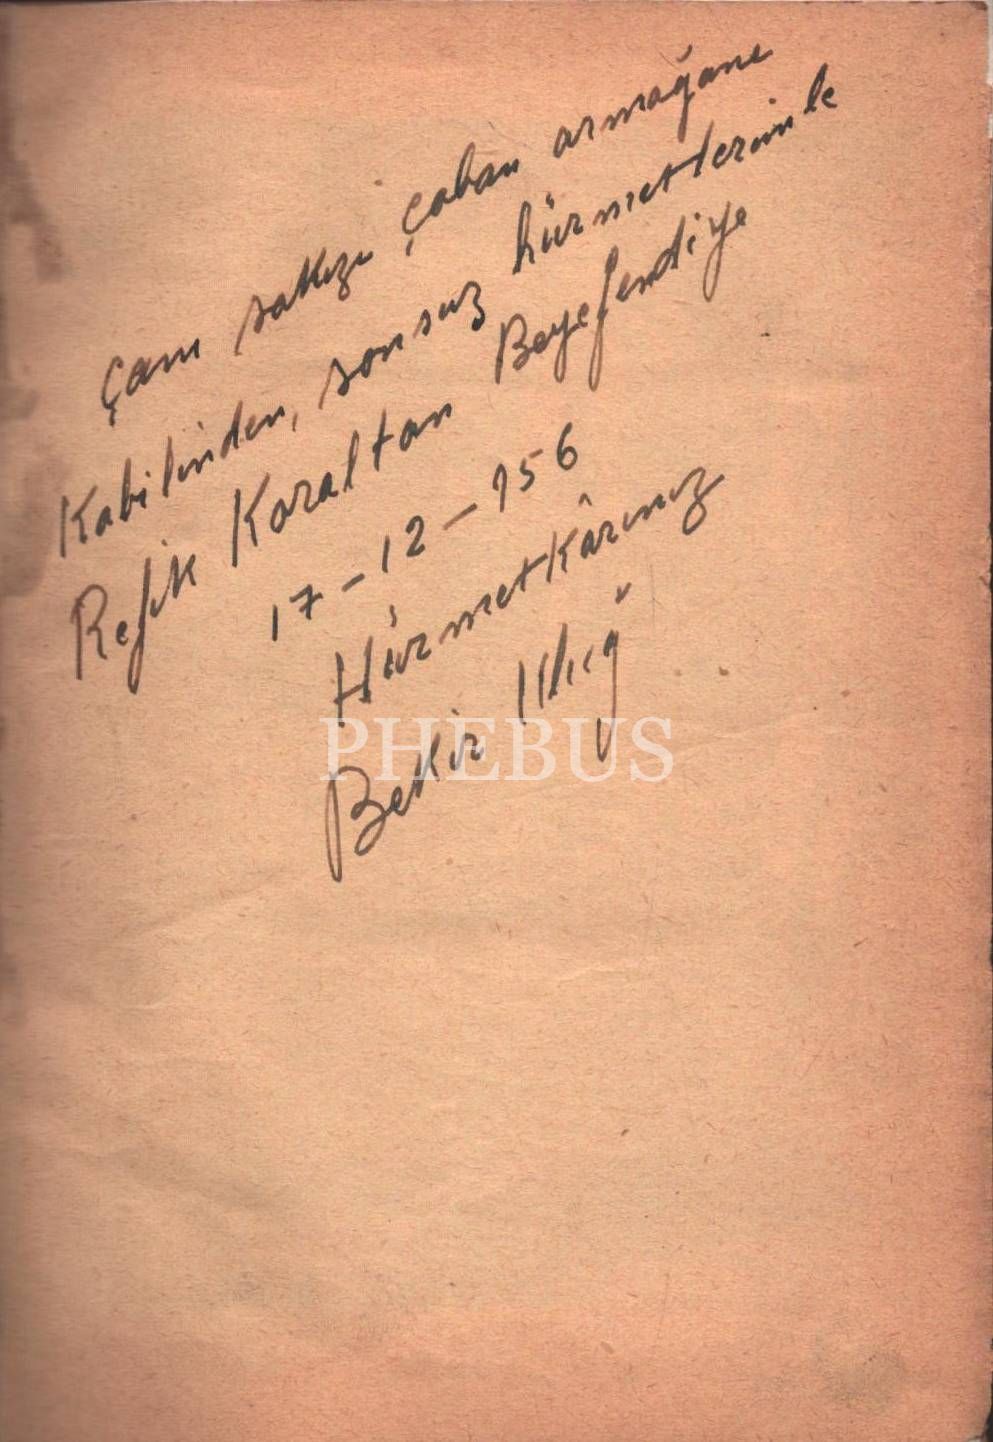 Çam sakızı çoban armağanı
Kabilinden, sonsuz hürmetlerimle
Refik Koraltan Beyefendiye
17-12-956
Hürmetkârınız
Bekir Uluğ
PHEBUS